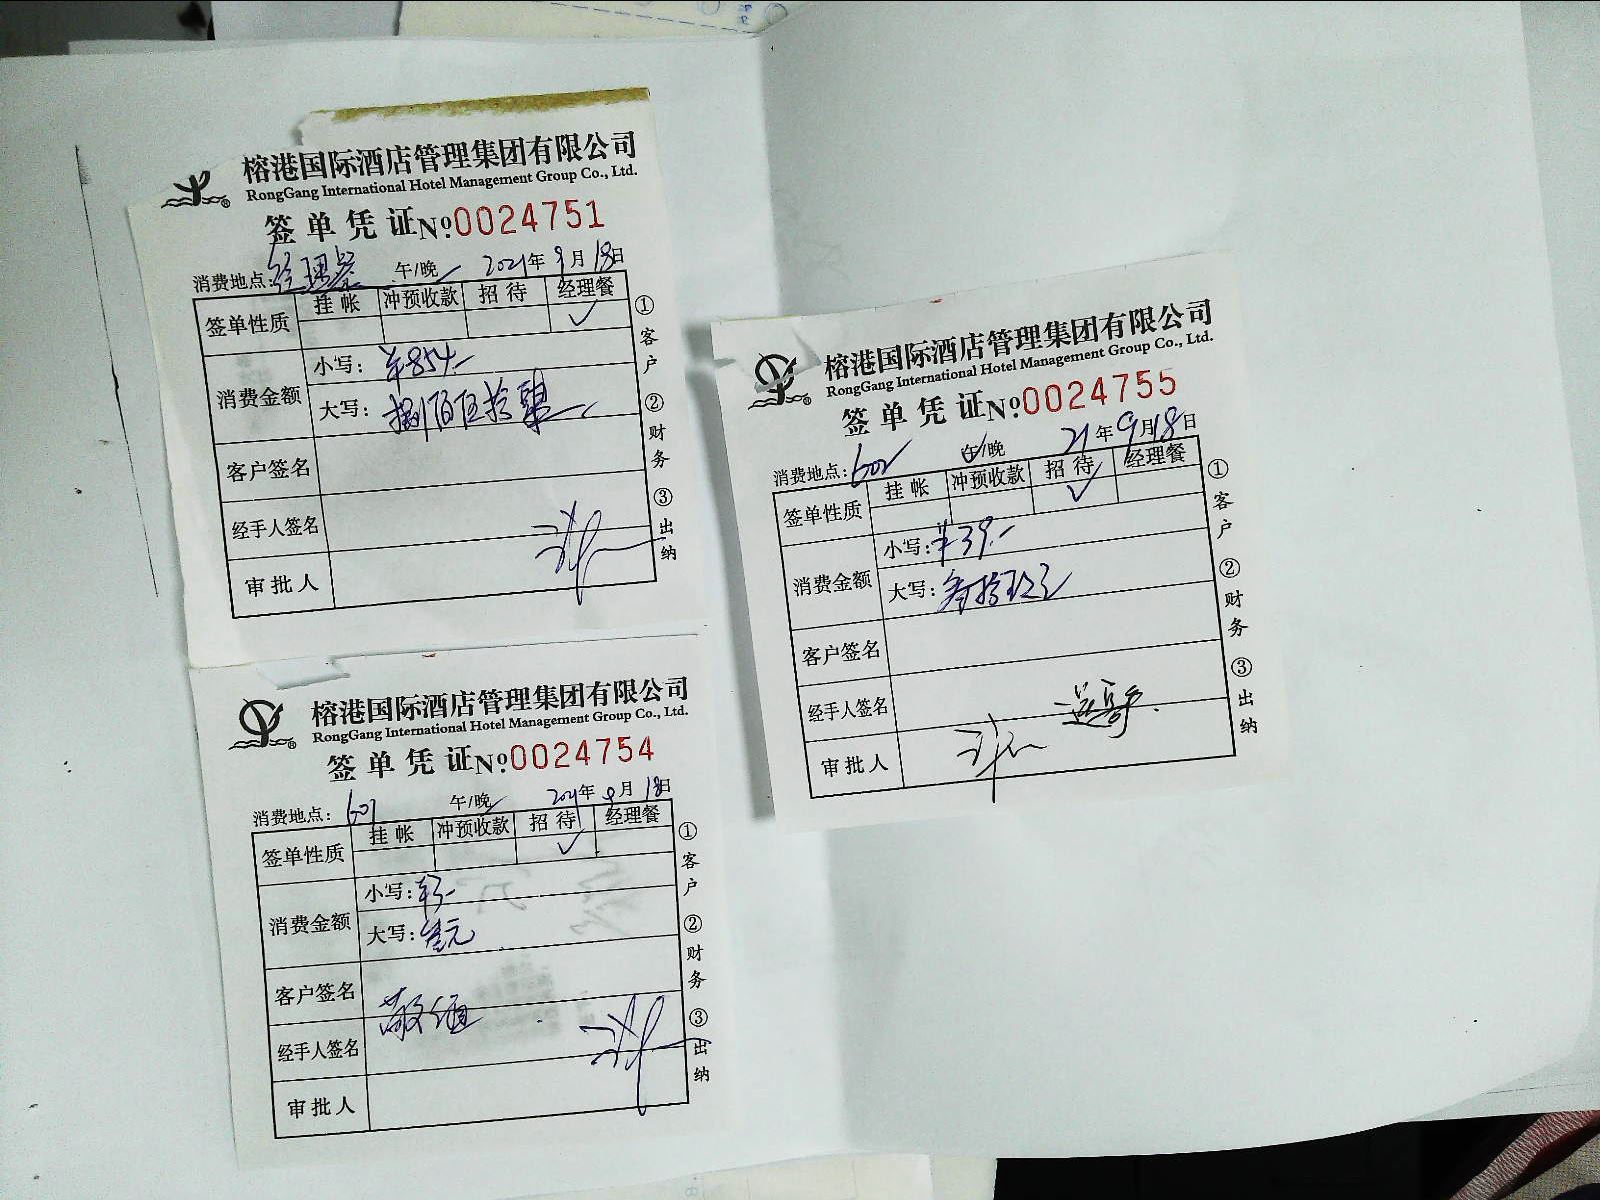 榕港国际酒店管理集团有限公司
RongGang International Hotel Management Group Co., Ltd.
签单凭证 №0024751
消费地点: 经理餐 午/晚 2021年9月18日
签单性质 挂帐 冲预收款 招待 经理餐
✓
消费金额 小写: ¥854.-
大写: 捌佰伍拾肆
客户签名
经手人签名
审批人
①客户 ②财务 ③出纳
榕港国际酒店管理集团有限公司
RongGang International Hotel Management Group Co., Ltd.
签单凭证 №0024754
消费地点: 601 午/晚 2021年9月18日
签单性质 挂帐 冲预收款 招待 经理餐
✓
消费金额 小写: ¥3.-
大写: 叁元
客户签名
经手人签名
审批人
①客户 ②财务 ③出纳
榕港国际酒店管理集团有限公司
RongGang International Hotel Management Group Co., Ltd.
签单凭证 №0024755
消费地点: 602 午/晚 21年9月18日
签单性质 挂帐 冲预收款 招待 经理餐
✓
消费金额 小写: ¥39.-
大写: 叁拾玖元
客户签名
经手人签名
审批人
①客户 ②财务 ③出纳